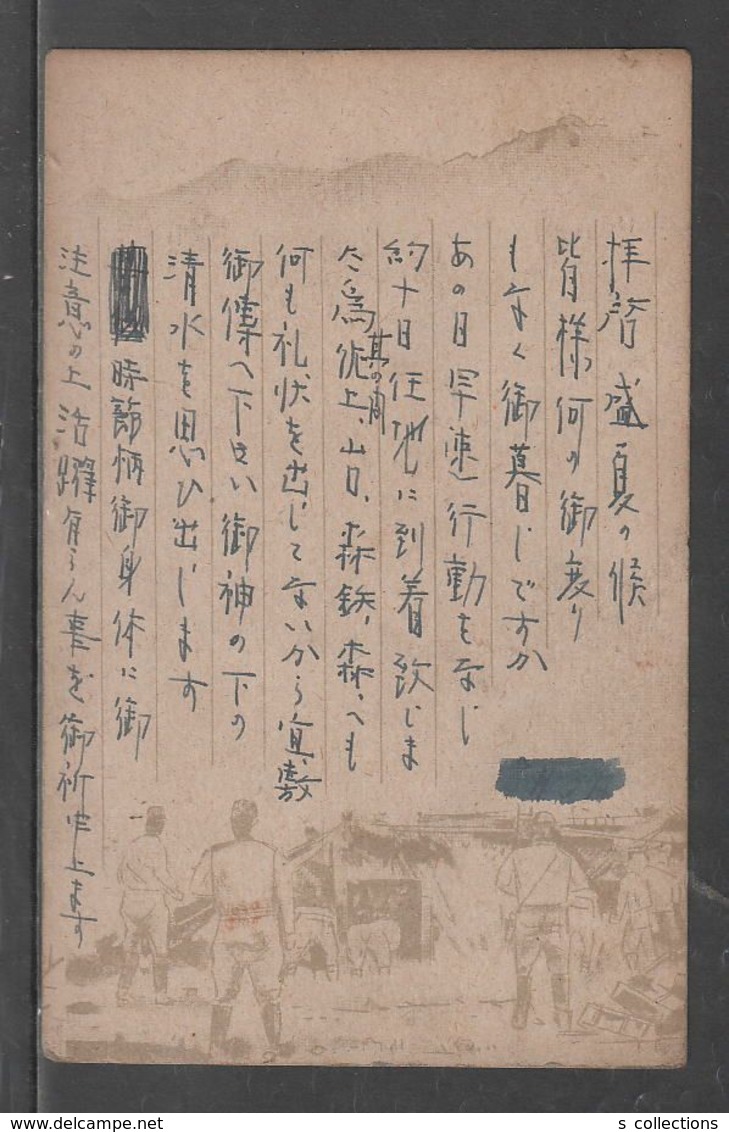 拝啓 盛夏の候
皆様何の御変り
もなく御暮しですか
あの日早速行動をなし
約十日任地に到着致しま
其の間
為 上、山口、森鉄、森、へも
何も礼状を出してないから宜敷
御傳へ下さい御神の下の
清水を思ひ出します
時節柄御身体に御
注意の上活躍有らん事を御祈申上ます
s collections